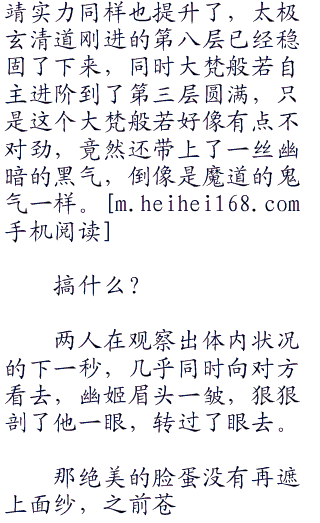 靖实力同样也提升了，太极
玄清道刚进的第八层已经稳
固了下来，同时大梵般若自
主进阶到了第三层圆满，只
是这个大梵般若好像有点不
对劲，竟然还带上了一丝幽
暗的黑气，倒像是魔道的鬼
气一样。[m.heihei168.com
手机阅读]
搞什么？
两人在观察出体内状况
的下一秒，几乎同时向对方
看去，幽姬眉头一皱，狠狠
剖了他一眼，转过了眼去。
那绝美的脸蛋没有再遮
上面纱，之前苍